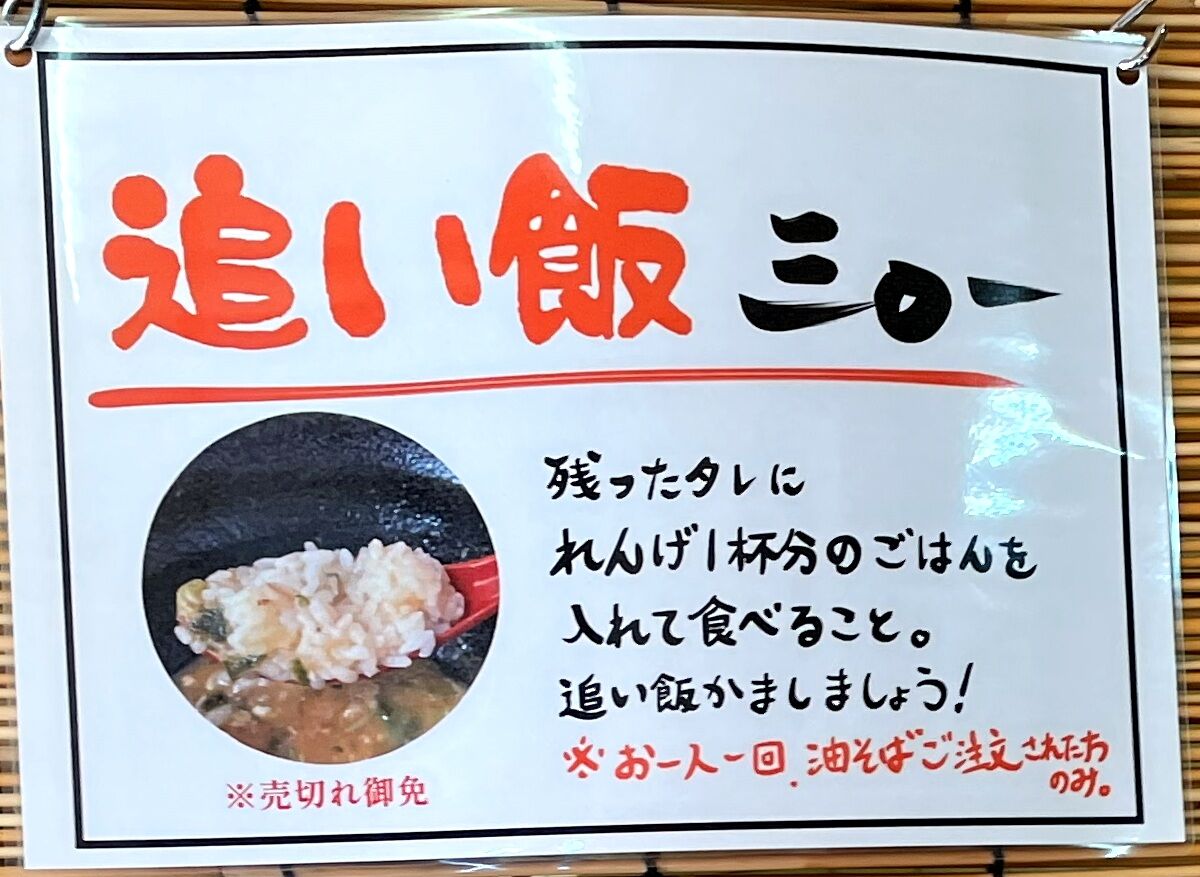 追い飯 三〇一
残ったタレに
れんげ1杯分のごはんを
入れて食べること。
追い飯かましましょう!
※お一人一回、油そばご注文された方
のみ。
※売切れ御免